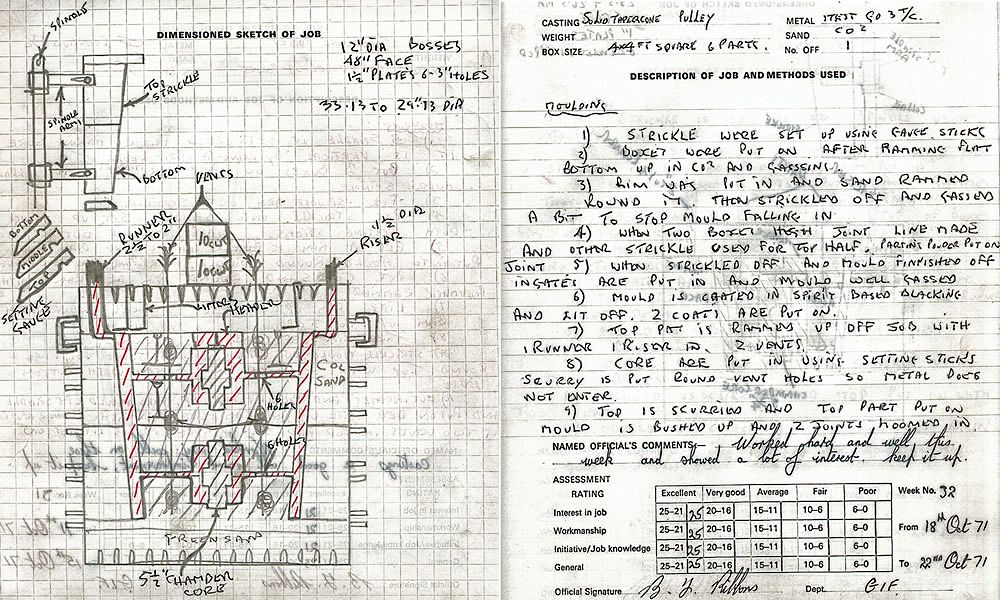 DIMENSIONED SKETCH OF JOB
12" DIA BOSSES
48" FACE
1½" PLATES 6-3" HOLES
33.13 TO 29"13 DIA
SPINDLE
TOP STRICKLE
SPINDLE ARMS
BOTTOM
BOTTOM
MIDDLE
TOP
SETTING GAUGE
VENTS
RUNNER 2½ TO 2"
1½ DIA RISER
LIFTERS
HEADER
CO2 SAND
6 HOLES
6 HOLES
GREENSAND
5½" CHAMBER CORE
CASTING
WEIGHT
BOX SIZE 4x4 FT SQUARE 6 PARTS.
METAL
SAND CO²
No. OFF 1
DESCRIPTION OF JOB AND METHODS USED
MOULDING
1) STRICKLE WERE SET UP USING GAUGE STICKS
2) BOXES WERE PUT ON AFTER RAMMING FLAT
BOTTOM UP IN CO² AND GASSING
3) RIM WAS PUT IN AND SAND RAMMED
ROUND IT THEN STRICKLED OFF AND GASSED
A BIT TO STOP MOULD FALLING IN
4) WHEN TWO BOXES HIGH JOINT LINE MADE
AND OTHER STRICKLE USED FOR TOP HALF. PARTING POWDER PUT ON
JOINT 5) WHEN STRICKLED OFF AND MOULD FINNISHED OFF
INGATES ARE PUT IN AND MOULD WELL GASSED
6) MOULD IS COATED IN SPIRIT BASED BLACKING
AND LIT OFF. 2 COATS ARE PUT ON.
7) TOP PRT IS RAMMED UP OFF JOB WITH
1 RUNNER 1 RISER IN. 2 VENTS
8) CORE ARE PUT IN USING SETTING STICKS
SCURRY IS PUT ROUND VENT HOLES SO METAL DOES
NOT ENTER.
9) TOP IS SCURRIED AND TOP PART PUT ON
MOULD IS BUSHED UP AND 2 JOINTS MOOMED IN
NAMED OFFICIAL'S COMMENTS:— Worked hard and well this
week and showed a lot of interest. keep it up.
ASSESSMENT
RATING Excellent Very good Average Fair Poor Week No. 32
Interest in job 25–21 25 20–16 15–11 10–6 6–0
Workmanship 25–21 25 20–16 15–11 10–6 6–0 From 18th Oct 71
Initiative/Job knowledge 25–21 25 20–16 15–11 10–6 6–0
General 25–21 25 20–16 15–11 10–6 6–0 To 22nd Oct 71
Official Signature Dept. G.I.F.